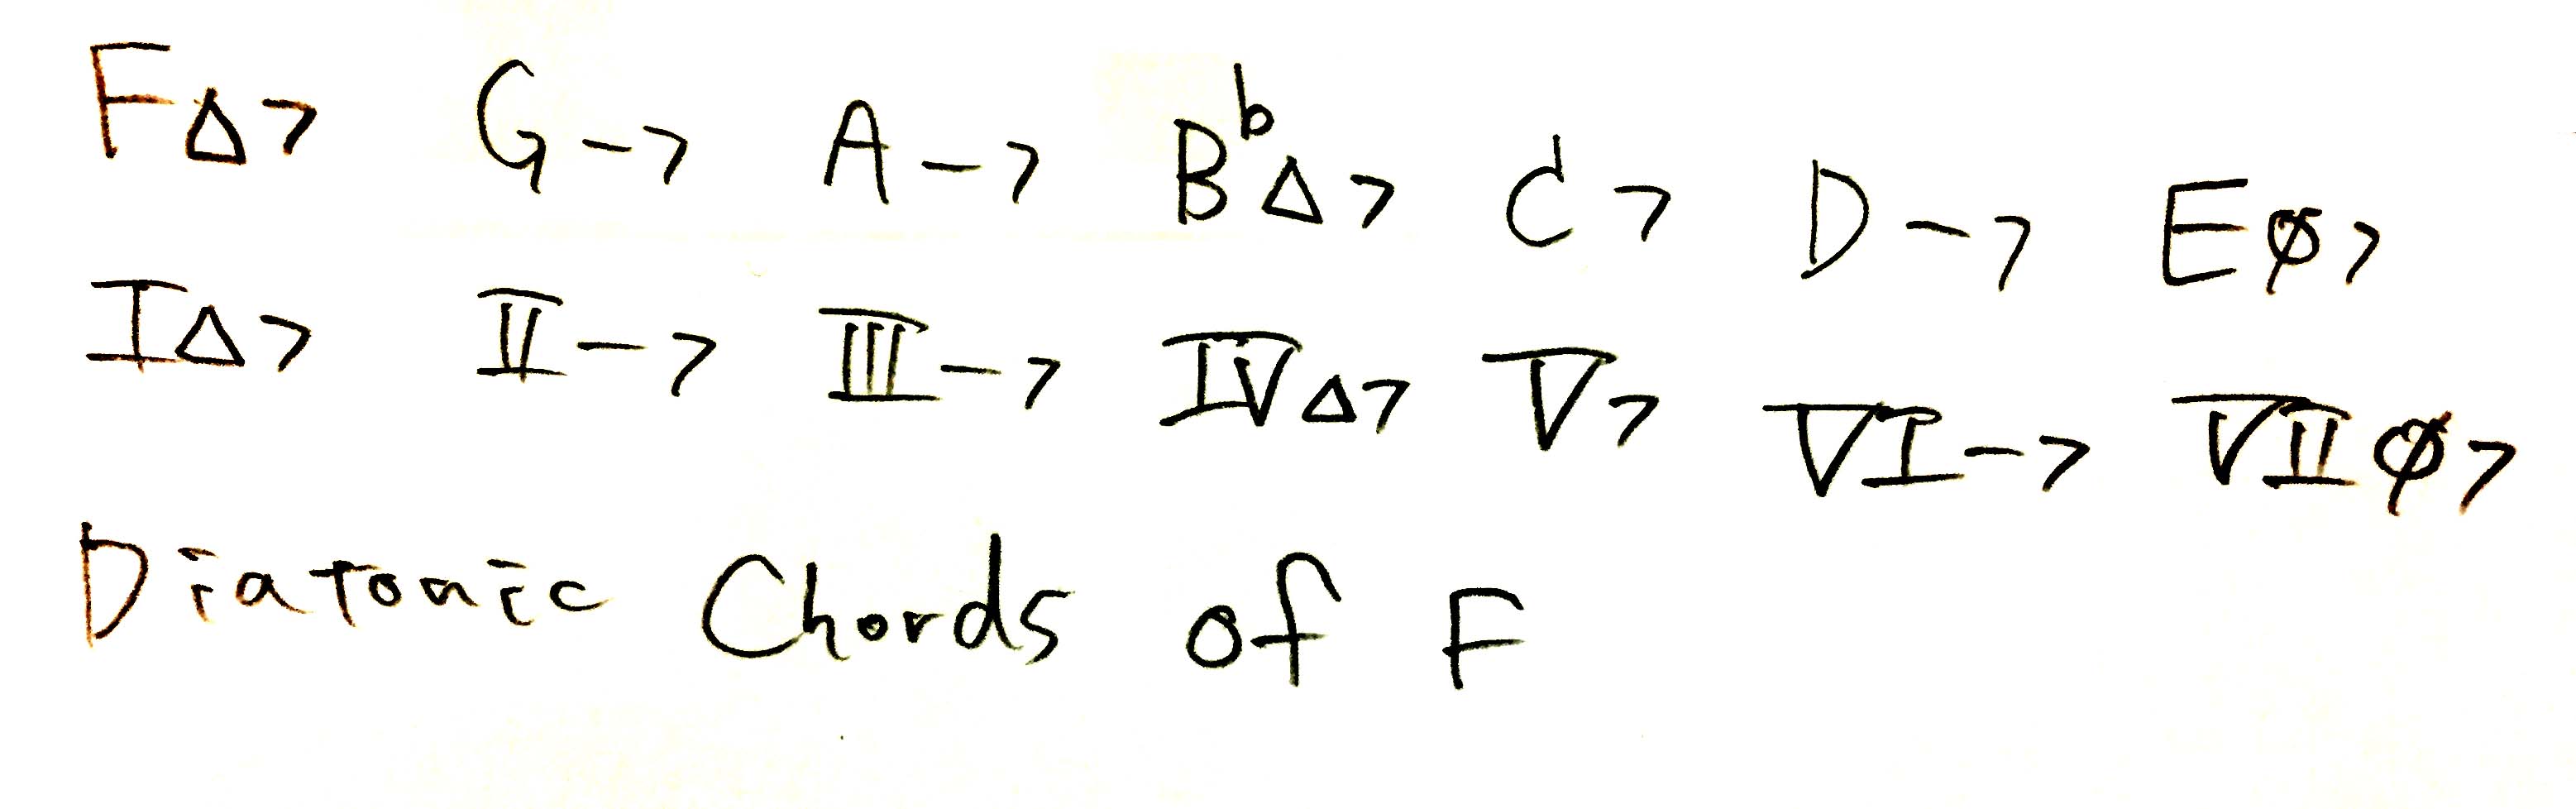 F△7 G-7 A-7 B♭△7 C7 D-7 Eø7
I△7 II-7 III-7 IV△7 V7 VI-7 VIIø7
Diatonic Chords of F